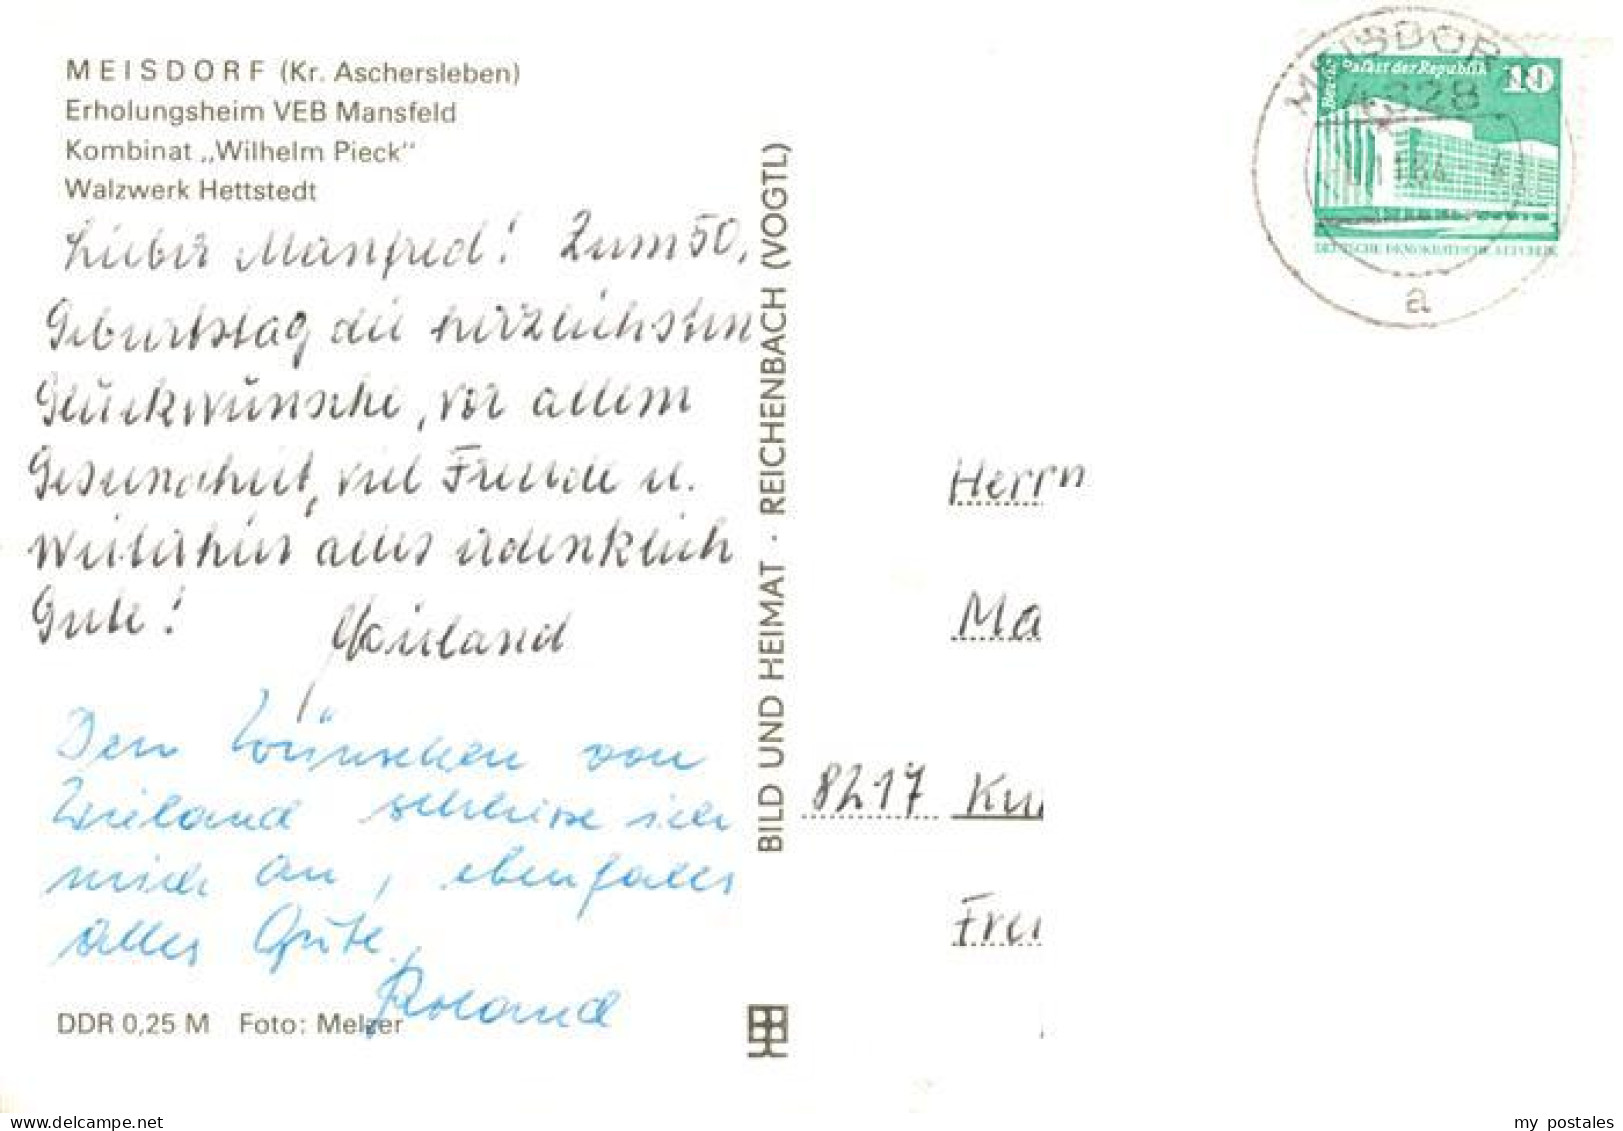 MEISDORF (Kr. Aschersleben)
Erholungsheim VEB Mansfeld
Kombinat „Wilhelm Pieck“
Walzwerk Hettstedt
Lieber Manfred! Zum 50.
Geburtstag die herzlichsten
Glückwünsche, vor allem
Gesundheit, viel Freude u.
weiterhin alles erdenklich
Gute!
Wieland
Den Wünschen von
Wieland schließe ich
mich an, ebenfalls
alles Gute.
Roland
DDR 0,25 M Foto: Melzer
BILD UND HEIMAT · REICHENBACH (VOGTL)
MEISDORF
4328
a
Palast der Republik 10
DEUTSCHE DEMOKRATISCHE REPUBLIK
Herrn
Ma
8217 Ku
Frei
www.delcampe.net
my_postales